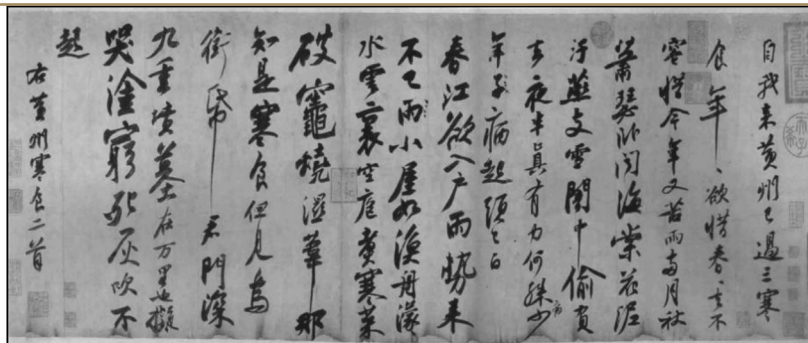 自我来黄州已過三寒
食年、欲惜春、去不
容惜今年又苦雨兩月秋
蕭瑟卧聞海棠花泥
汙燕支雪闇中偷負
去夜半真有力何殊病少
年子病起頭已白
春江欲入户雨勢来
不已雨小屋如漁舟濛、
水雲裏空庖煑寒菜
破竈燒濕葦那
知是寒食但見烏
銜帋君門深
九重墳墓在万里也擬
哭塗窮死灰吹不
起
右黄州寒食二首